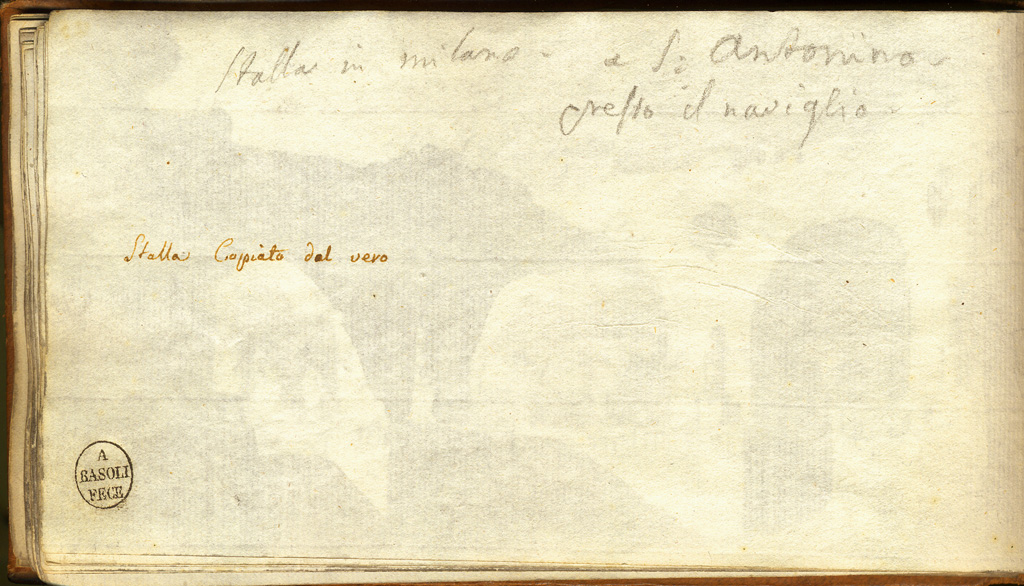 Stalla in milano - a S: Antonino -
presso il naviglio -
Stalla Copiato dal vero
A
BASOLI
FECE